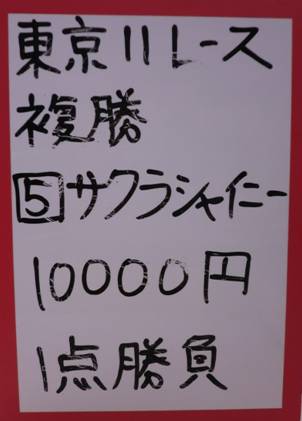 東京11レース
複勝
5サクラシャイニー
10000円
1点勝負